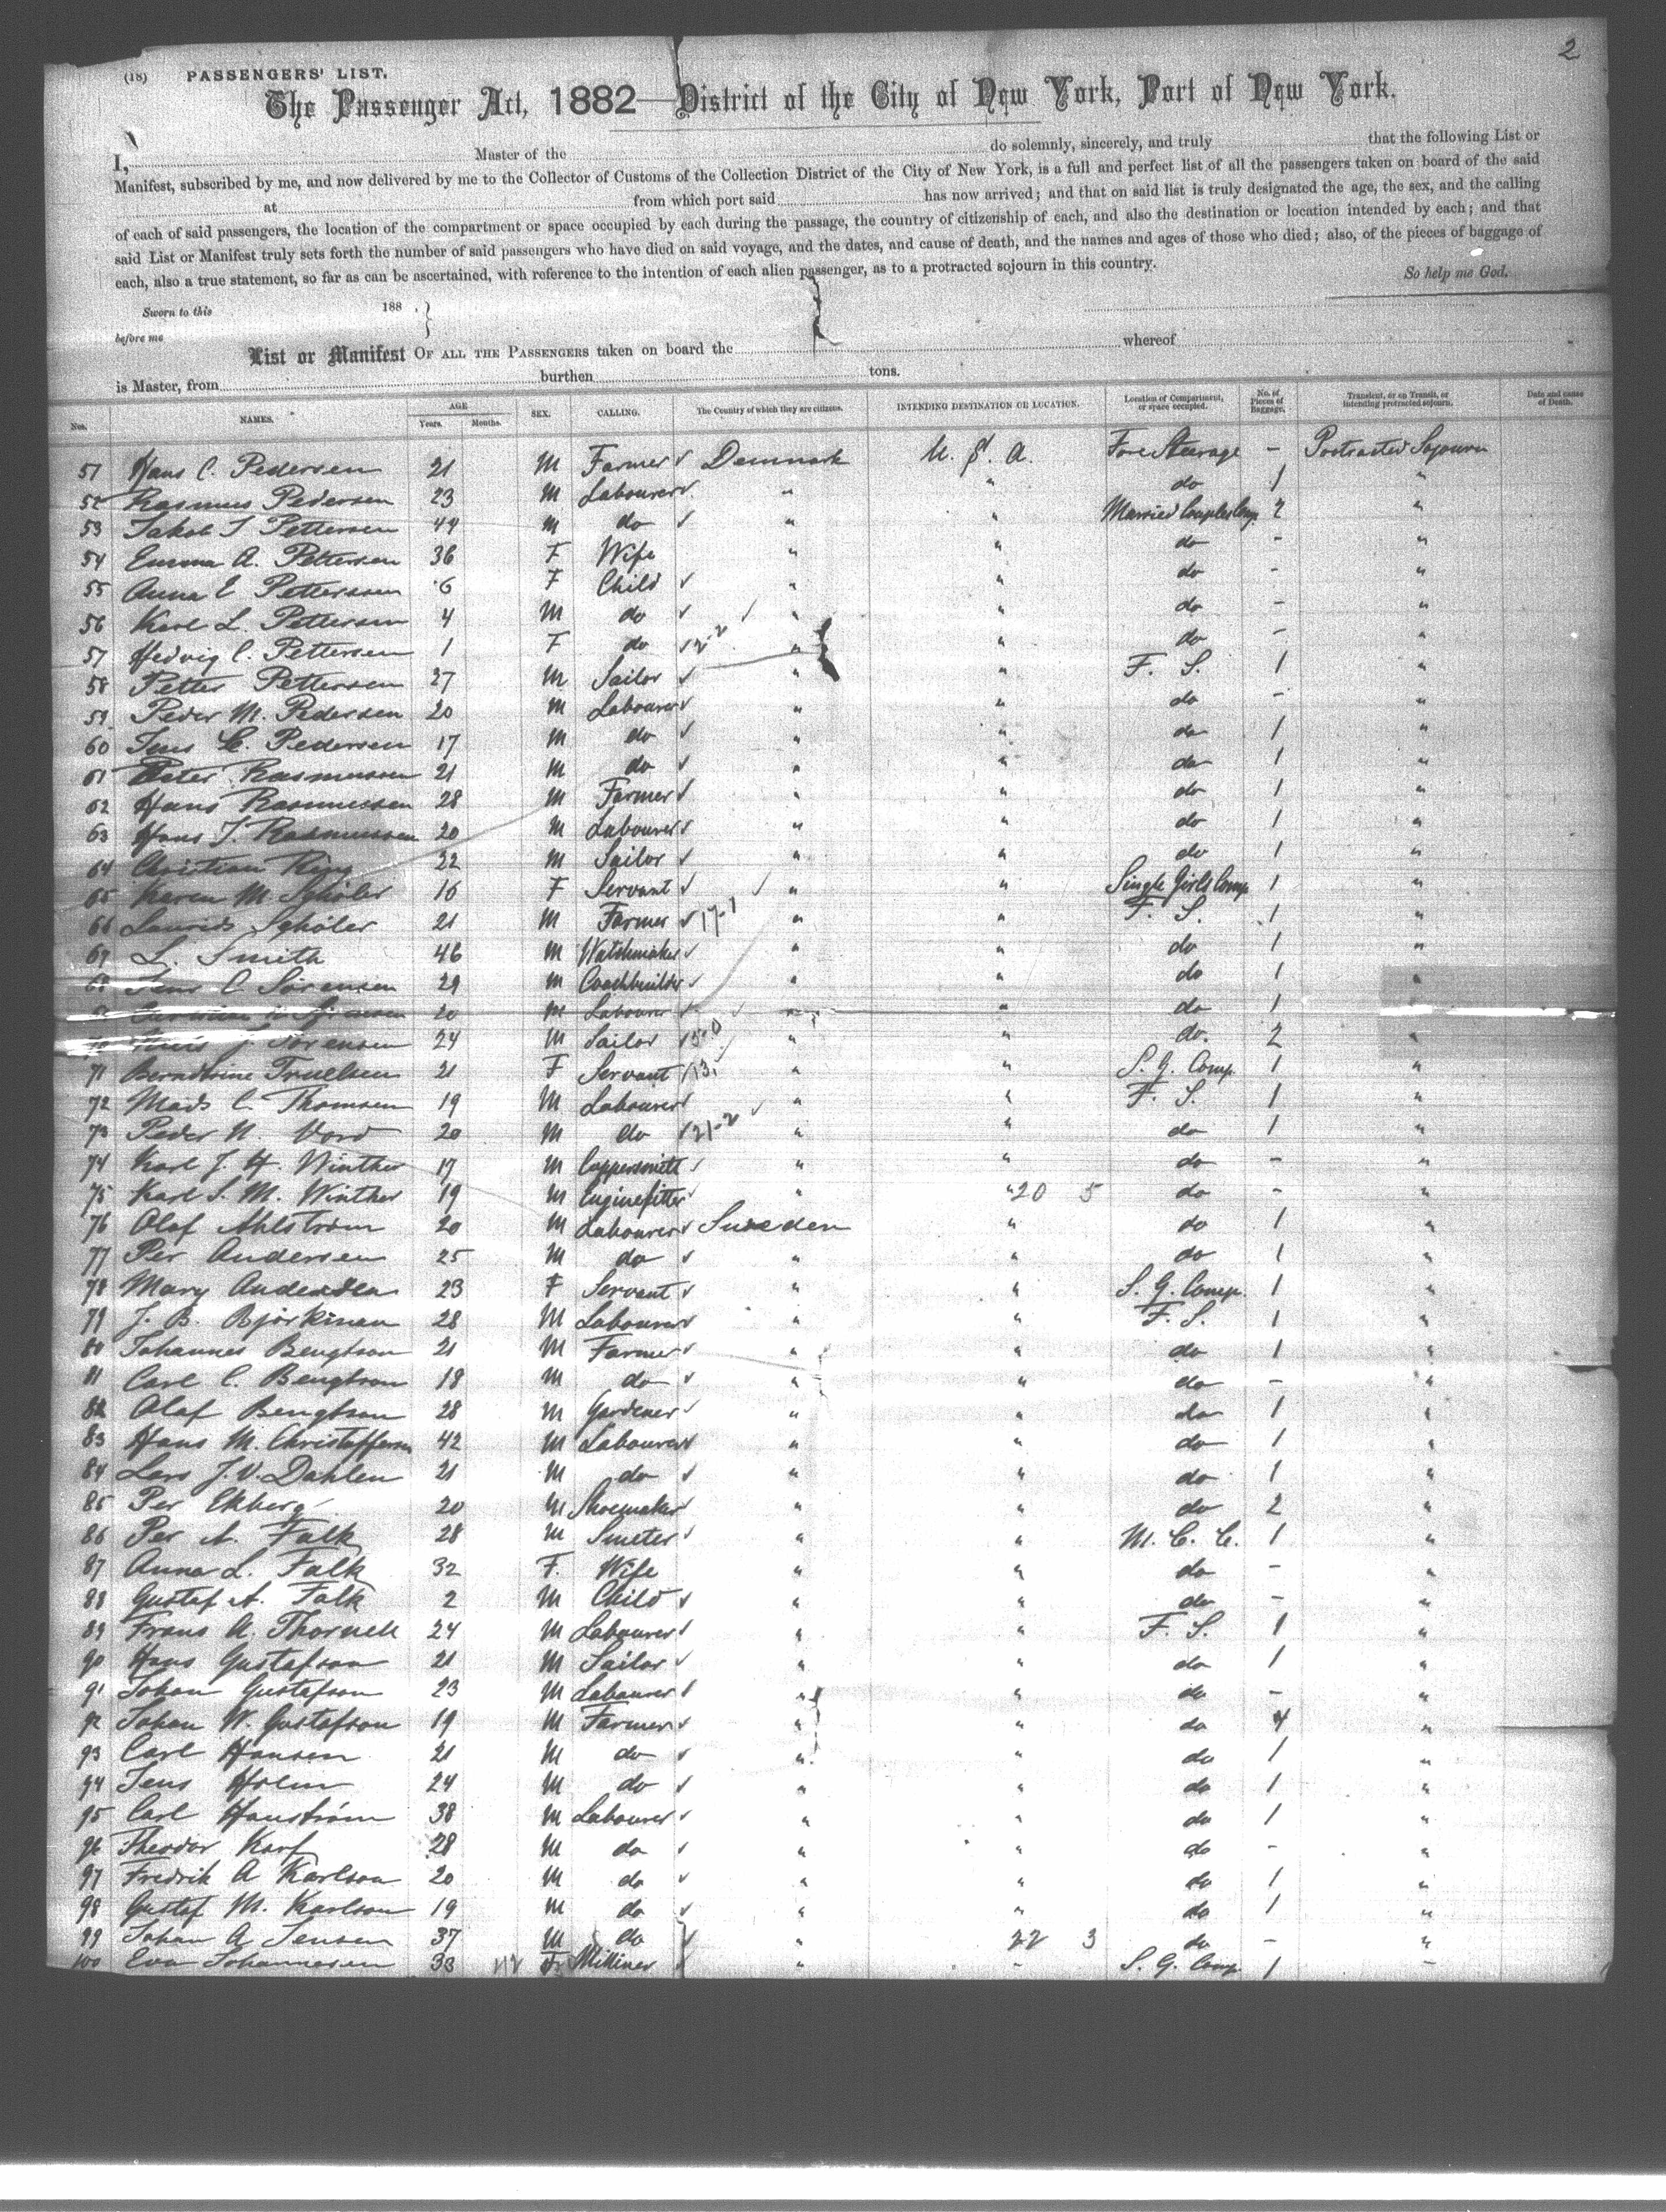 2
(18) PASSENGERS' LIST.
The Passenger Act, 1882—District of the City of New York, Port of New York.
I, Master of the do solemnly, sincerely, and truly that the following List or
Manifest, subscribed by me, and now delivered by me to the Collector of Customs of the Collection District of the City of New York, is a full and perfect list of all the passengers taken on board of the said
at from which port said has now arrived; and that on said list is truly designated the age, the sex, and the calling
of each of said passengers, the location of the compartment or space occupied by each during the passage, the country of citizenship of each, and also the destination or location intended by each; and that
said List or Manifest truly sets forth the number of said passengers who have died on said voyage, and the dates, and cause of death, and the names and ages of those who died; also, of the pieces of baggage of
each, also a true statement, so far as can be ascertained, with reference to the intention of each alien passenger, as to a protracted sojourn in this country. So help me God.
Sworn to this 188 .
before me
List or Manifest OF ALL THE PASSENGERS taken on board the whereof
is Master, from burthen tons.
Nos. NAMES. AGE Years. Months. SEX. CALLING. The Country of which they are citizens. INTENDING DESTINATION OR LOCATION. Location of Compartment, or space occupied. No. of Pieces of Baggage. Transient, or on Transit, or intending protracted sojourn. Date and cause of Death.
51 Hans C. Pedersen 21 M Farmer Denmark U. S. A. Fore Steerage - Protracted Sojourn
52 Rasmus Pedersen 23 M Labourer " " do 1 "
53 Jakob J Pettersen 44 M do " " Married Couples Comp. 2 "
54 Emma A. Pettersen 36 F Wife " " do - "
55 Anna E Petterssen 6 F Child " " do - "
56 Karl L. Pettersen 4 M do " " do - "
57 Hedvig C. Pettersen 1 F do 12-2 " " do - "
58 Petter Pettersen 27 M Sailor " " F. S. 1 "
59 Peder M. Pedersen 20 M Labourer " " do - "
60 Jens C. Pedersen 17 M do " " do 1 "
61 Peter Rasmussen 21 M do " " do 1 "
62 Hans Rasmussen 28 M Farmer " " do 1 "
63 Hans J. Rasmussen 20 M Labourer " " do 1 "
64 Christian Ring 22 M Sailor " " do 1 "
65 Karen M. Schöler 16 F Servant " " Single Girls Comp 1 "
66 Laurids Schöler 21 M Farmer 17-1 " " F. S. 1 "
67 L. Smith 46 M Watchmaker " " do 1 "
68 Jens C Sörensen 29 M Coachbuilder " " do 1 "
20 M Labourer " " do 1
J. Sörensen 24 M Sailor 15-0 " " do. 2 "
71 Berndtrine Truelsen 21 F Servant 13 " " S. G. Comp. 1 "
72 Mads C. Thomsen 19 M Labourer " " F. S. 1 "
73 Peder N. Vord 20 M do 121-2 " " do 1 "
74 Karl J. H. Winther 17 M Coppersmith " " do - "
75 Karl S. M. Winther 19 M Enginefitter " " 20 5 do - "
76 Olaf Ahlström 20 M Labourer Sweden " do 1 "
77 Per Andersen 25 M do " " do 1 "
78 Mary Andersen 23 F Servant " " S. G. Comp. 1 "
79 J. B. Björkman 28 M Labourer " " F. S. 1 "
80 Johannes Bengtson 21 M Farmer " " do 1 "
81 Carl C. Bengtson 18 M do " " do - "
82 Olaf Bengtson 28 M Gardener " " do 1 "
83 Hans M. Christofferson 42 M Labourer " " do 1 "
84 Lars J. V. Dahlen 21 M do " " do 1 "
85 Per Ekberg 20 M Shoemaker " " do 2 "
86 Per A. Falk 28 M Smeter " " M. C. C. 1 "
87 Anna L. Falk 32 F. Wife " " do - "
88 Gustaf A. Falk 2 M Child " " do - "
89 Frans A. Thornell 24 M Labourer " " F. S. 1 "
90 Hans Gustafson 21 M Sailor " " do 1 "
91 Johan Gustafson 23 M Labourer " " do - "
92 Johan W. Gustafson 19 M Farmer " " do 4 "
93 Carl Hansen 21 M do " " do 1 "
94 Jens Holm 24 M do " " do 1 "
95 Carl Hanström 38 M Labourer " " do 1 "
96 Theodor Korf 28 M do " " do - "
97 Fredrik A Karlson 20 M do " " do 1 "
98 Gustaf M. Karlson 19 M do " " do 1 "
99 Johan A Jensen 37 M do " 22 3 do - "
100 Eva Johannesen 33 F. Milliner " S. G. Comp. 1 "